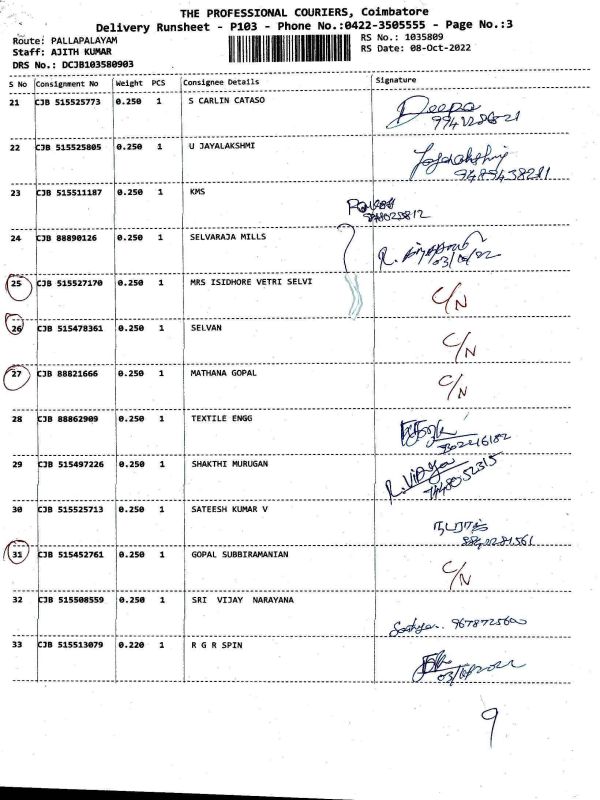 THE PROFESSIONAL COURIERS, Coimbatore
Delivery Runsheet - P103 - Phone No.:0422-3505555 - Page No.:3
Route: PALLAPALAYAM RS No.: 1035809
Staff: AJITH KUMAR RS Date: 08-Oct-2022
DRS No.: DCJB103580903
S No Consignment No Weight PCS Consignee Details Signature
21 CJB 515525773 0.250 1 S CARLIN CATASO Deepa
22 CJB 515525805 0.250 1 U JAYALAKSHMI
23 CJB 515511187 0.250 1 KMS
24 CJB 88890126 0.250 1 SELVARAJA MILLS
25 CJB 515527170 0.250 1 MRS ISIDHORE VETRI SELVI C/N
26 CJB 515478361 0.250 1 SELVAN C/N
27 CJB 88821666 0.250 1 MATHANA GOPAL C/N
28 CJB 88862909 0.250 1 TEXTILE ENGG
29 CJB 515497226 0.250 1 SHAKTHI MURUGAN R. Vidya
30 CJB 515525713 0.250 1 SATEESH KUMAR V
31 CJB 515452761 0.250 1 GOPAL SUBBIRAMANIAN C/N
32 CJB 515508559 0.250 1 SRI VIJAY NARAYANA
33 CJB 515513079 0.220 1 R G R SPIN
9